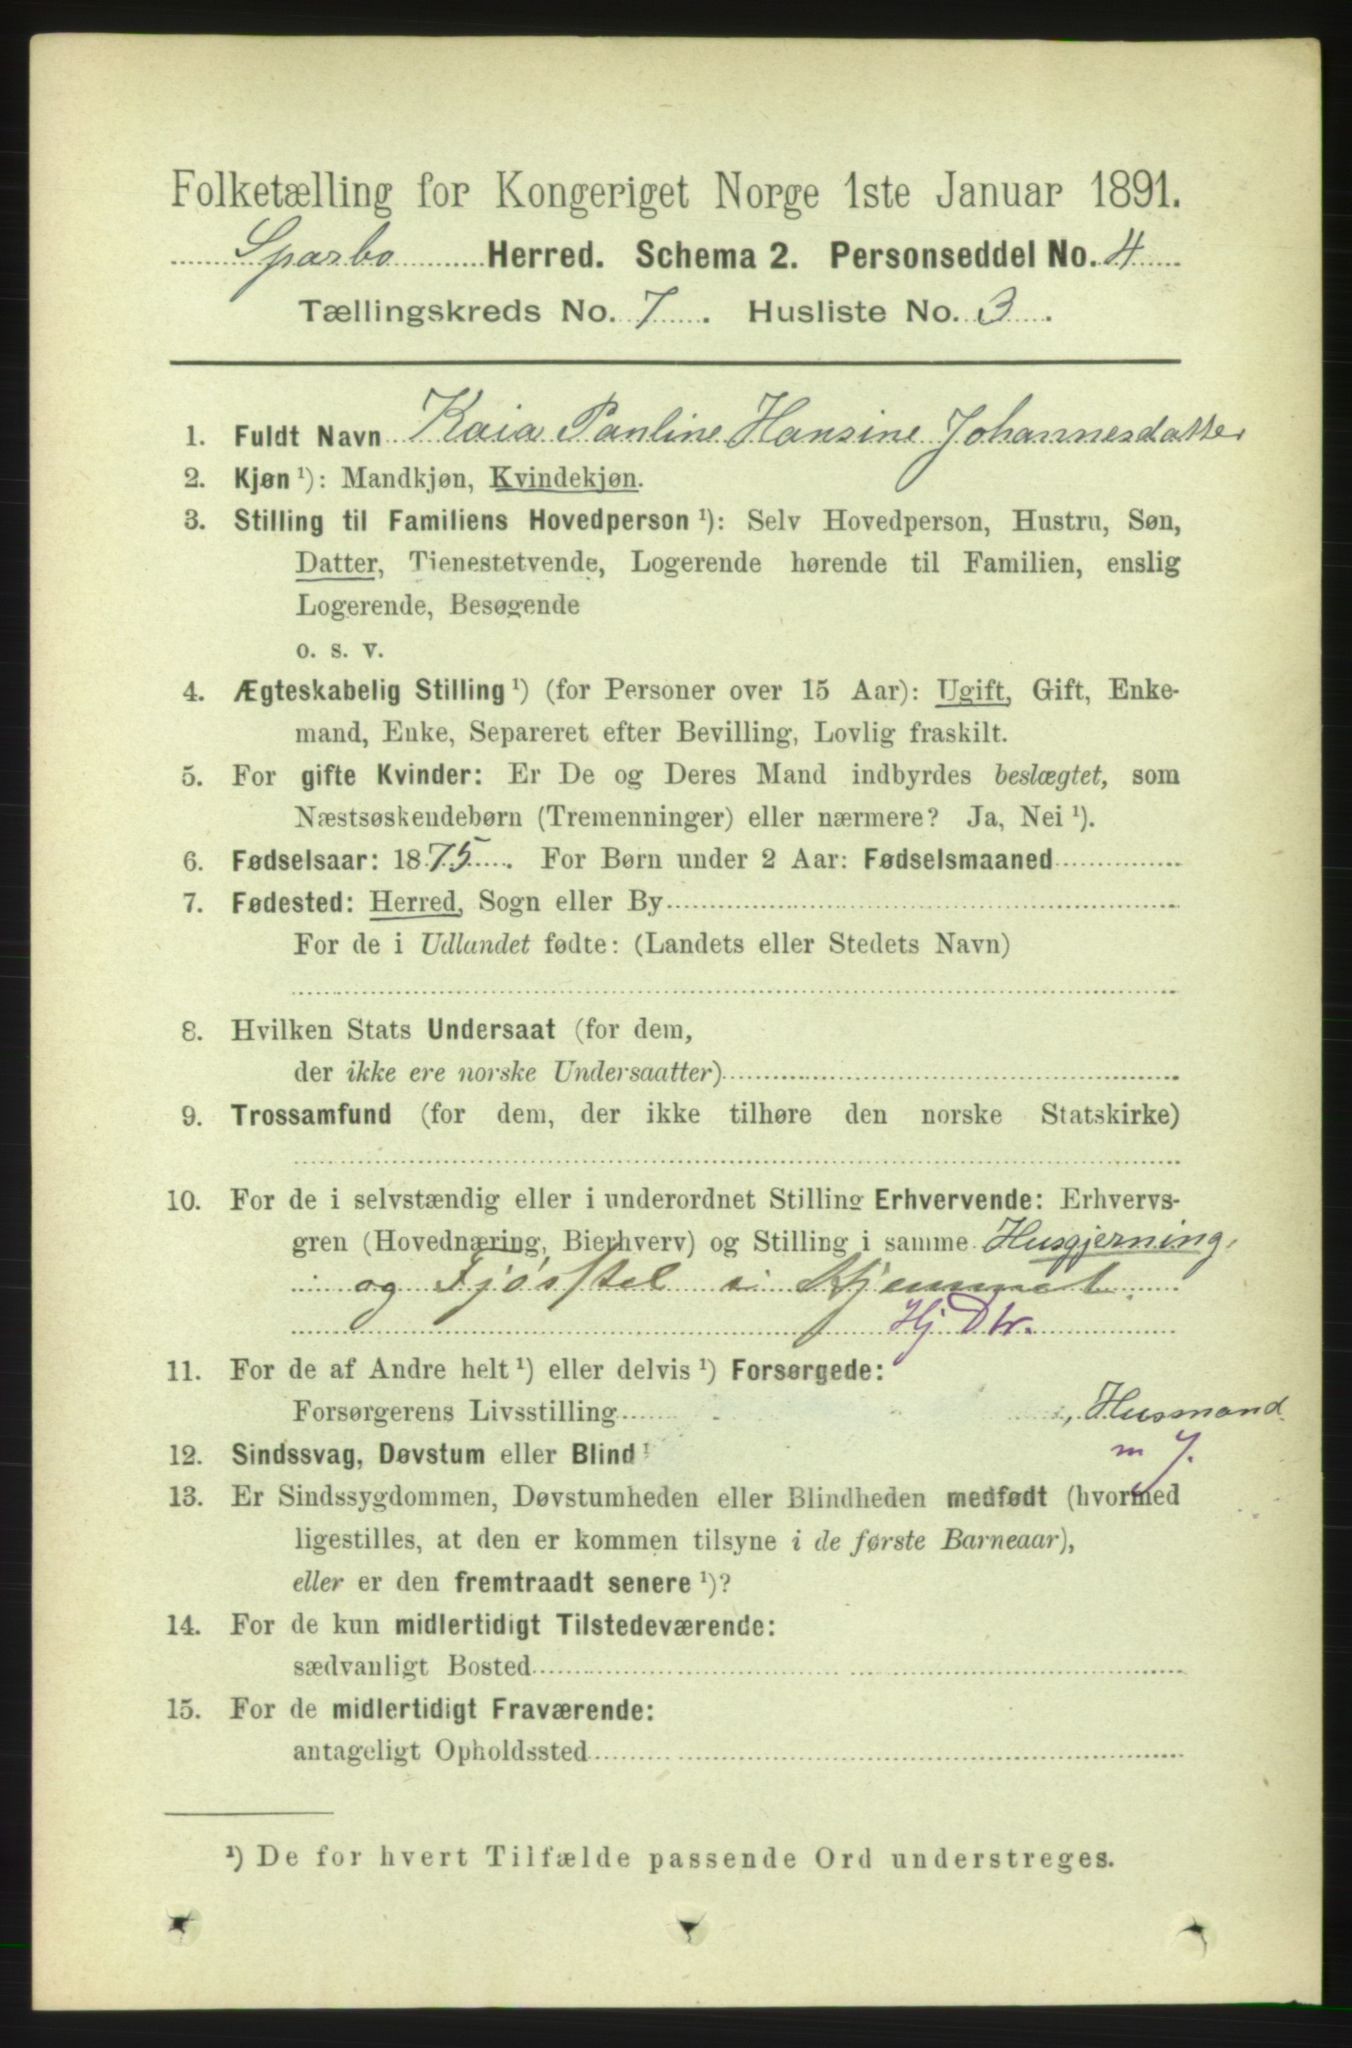 Folketælling for Kongeriget Norge 1ste Januar 1891.
Sparbo Herred. Schema 2. Personseddel No. 4
Tællingskreds No. 7. Husliste No. 3.
1. Fuldt Navn Kaia Pauline Hansine Johannesdatter
2. Kjøn ¹): Mandkjøn, Kvindekjøn.
3. Stilling til Familiens Hovedperson ¹): Selv Hovedperson, Hustru, Søn,
Datter, Tienestetvende, Logerende hørende til Familien, enslig
Logerende, Besøgende
o. s. v.
4. Ægteskabelig Stilling ¹) (for Personer over 15 Aar): Ugift, Gift, Enke-
mand, Enke, Separeret efter Bevilling, Lovlig fraskilt.
5. For gifte Kvinder: Er De og Deres Mand indbyrdes beslægtet, som
Næstsøskendebørn (Tremenninger) eller nærmere? Ja, Nei ¹).
6. Fødselsaar: 1875. For Børn under 2 Aar: Fødselsmaaned
7. Fødested: Herred, Sogn eller By
For de i Udlandet fødte: (Landets eller Stedets Navn)
8. Hvilken Stats Undersaat (for dem,
der ikke ere norske Undersaatter)
9. Trossamfund (for dem, der ikke tilhøre den norske Statskirke)
10. For de i selvstændig eller i underordnet Stilling Erhvervende: Erhvervs-
gren (Hovednæring, Bierhverv) og Stilling i samme Husgjerning,
og Fjøsstel i Hjemmet.
Hj Dtr.
11. For de af Andre helt ¹) eller delvis ¹) Forsørgede:
Forsørgerens Livsstilling , Husmand
m J.
12. Sindssvag, Døvstum eller Blind ¹
13. Er Sindssygdommen, Døvstumheden eller Blindheden medfødt (hvormed
ligestilles, at den er kommen tilsyne i de første Barneaar),
eller er den fremtraadt senere ¹)?
14. For de kun midlertidigt Tilstedeværende:
sædvanligt Bosted
15. For de midlertidigt Fraværende:
antageligt Opholdssted
¹) De for hvert Tilfælde passende Ord understreges.